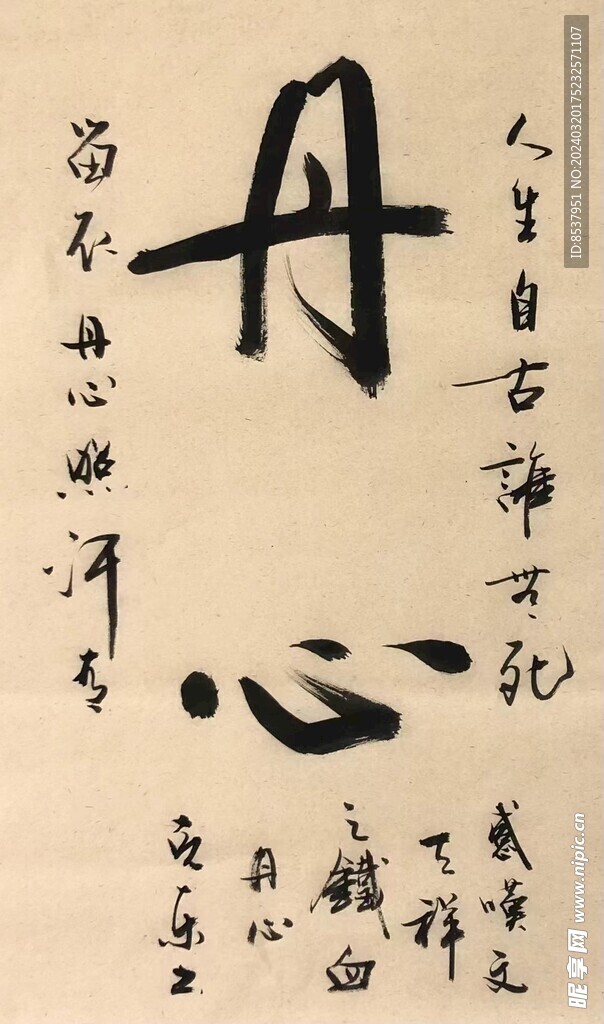 人生自古誰無死
丹心
留取丹心照汗青
感嘆文
天祥
之鐵血
丹心
ID:8537951 NO:20240320175232571107
昵享网 www.nipic.cn